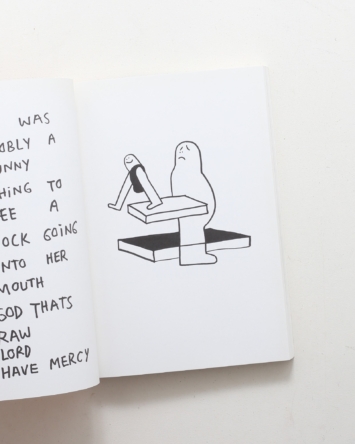 WAS
OBLY A
UNNY
HING TO
EE A
OCK GOING
NTO HER
MOUTH
GOD THATS
RAW
LORD
HAVE MERCY